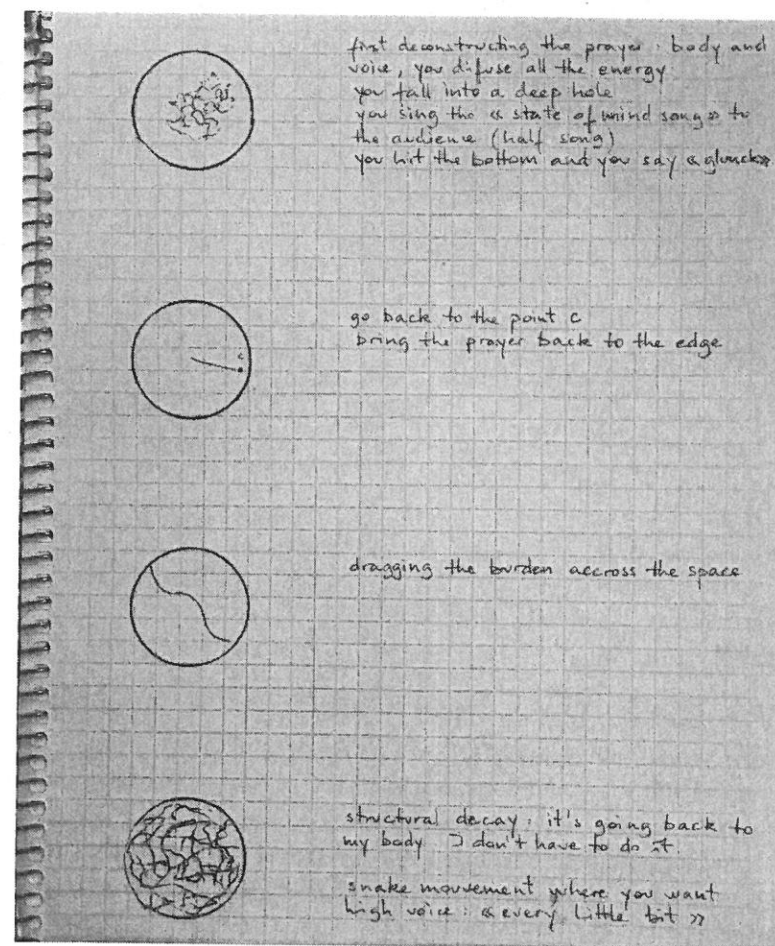 first deconstructing the prayer : body and
voice, you difuse all the energy
you fall into a deep hole
you sing the « state of mind song » to
the audience (half song)
you hit the bottom and you say « glunck »
go back to the point c
bring the prayer back to the edge
c
dragging the burden accross the space
structural decay : it's going back to
my body I don't have to do it.
snake mouvement where you want
high voice : « every little bit »